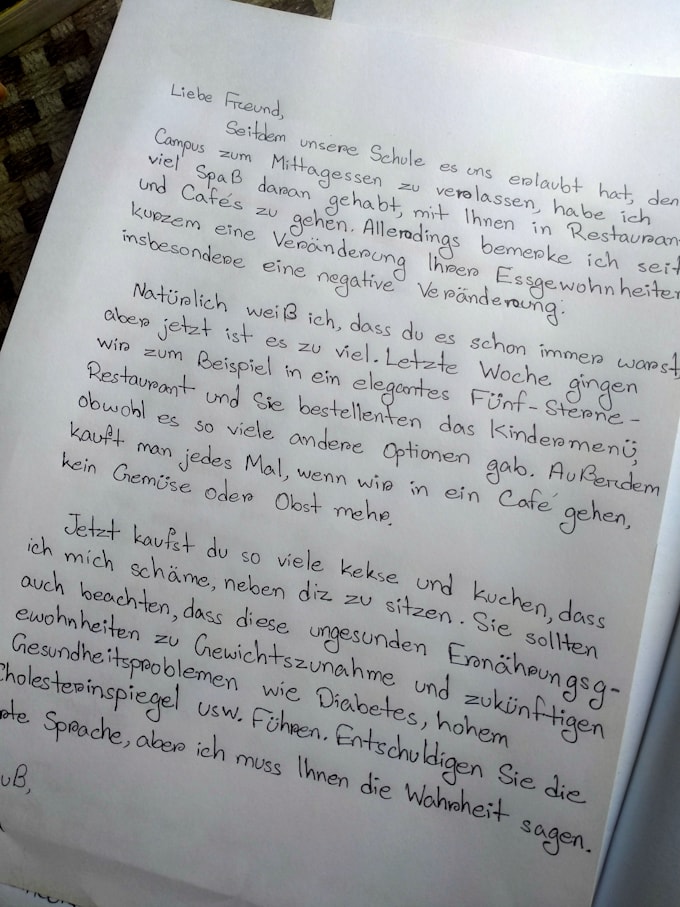 Liebe Freund,
Seitdem unsere Schule es uns erlaubt hat, den
Campus zum Mittagessen zu verlassen, habe ich
viel Spaß daran gehabt, mit Ihnen in Restauran
und Cafés zu gehen. Allerdings bemerke ich seit
kurzem eine Veränderung Ihrer Essgewohnheiten
insbesondere eine negative Veränderung.
Natürlich weiß ich, dass du es schon immer warst,
aber jetzt ist es zu viel. Letzte Woche gingen
wir zum Beispiel in ein elegantes Fünf-Sterne-
Restaurant und Sie bestellenten das Kindermenü,
obwohl es so viele andere Optionen gab. Außerdem
kauft man jedes Mal, wenn wir in ein Café gehen,
kein Gemüse oder Obst mehr.
Jetzt kaufst du so viele kekse und kuchen, dass
ich mich schäme, neben diz zu sitzen. Sie sollten
auch beachten, dass diese ungesunden Ernährungsg-
ewohnheiten zu Gewichtszunahme und zukünftigen
Gesundheitsproblemen wie Diabetes, hohem
Cholesterinspiegel usw. Führen. Entschuldigen Sie die
rte Sprache, aber ich muss Ihnen die Wahrheit sagen.
uß,